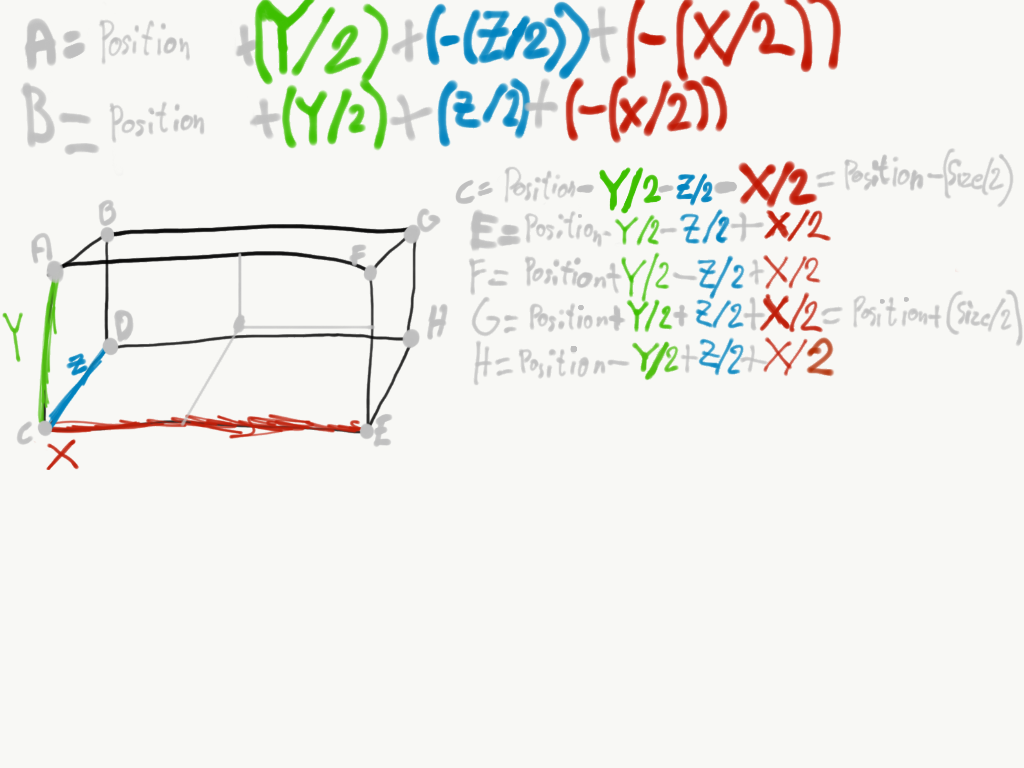 A = Position + (Y/2) + (-(Z/2)) + (-(X/2))
B = Position + (Y/2) + (Z/2) + (-(x/2))
C = Position - Y/2 - Z/2 - X/2 = Position - (Size/2)
E = Position - Y/2 - Z/2 + X/2
F = Position + Y/2 - Z/2 + X/2
G = Position + Y/2 + Z/2 + X/2 = Position + (Size/2)
H = Position - Y/2 + Z/2 + X/2
B G
A F
Y D H
Z
C E
X